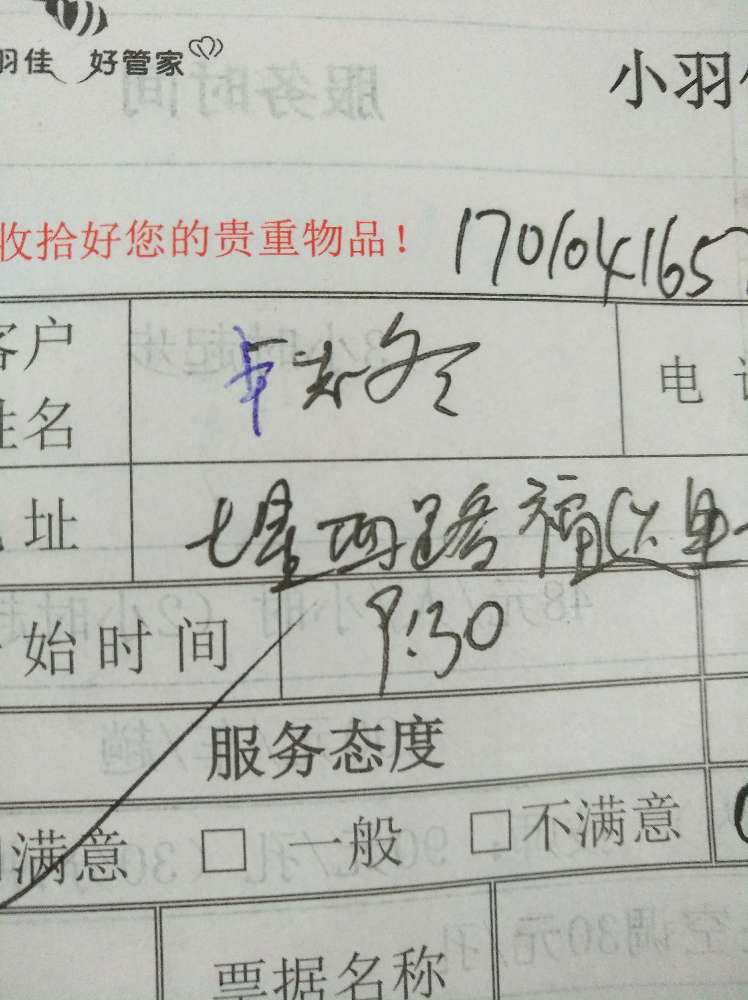 羽佳 好管家
小羽
收拾好您的贵重物品！ 170104165
客户
姓名
电
址 七星河路福
始时间 9:30
服务态度
满意 □ 一般 □ 不满意
票据名称